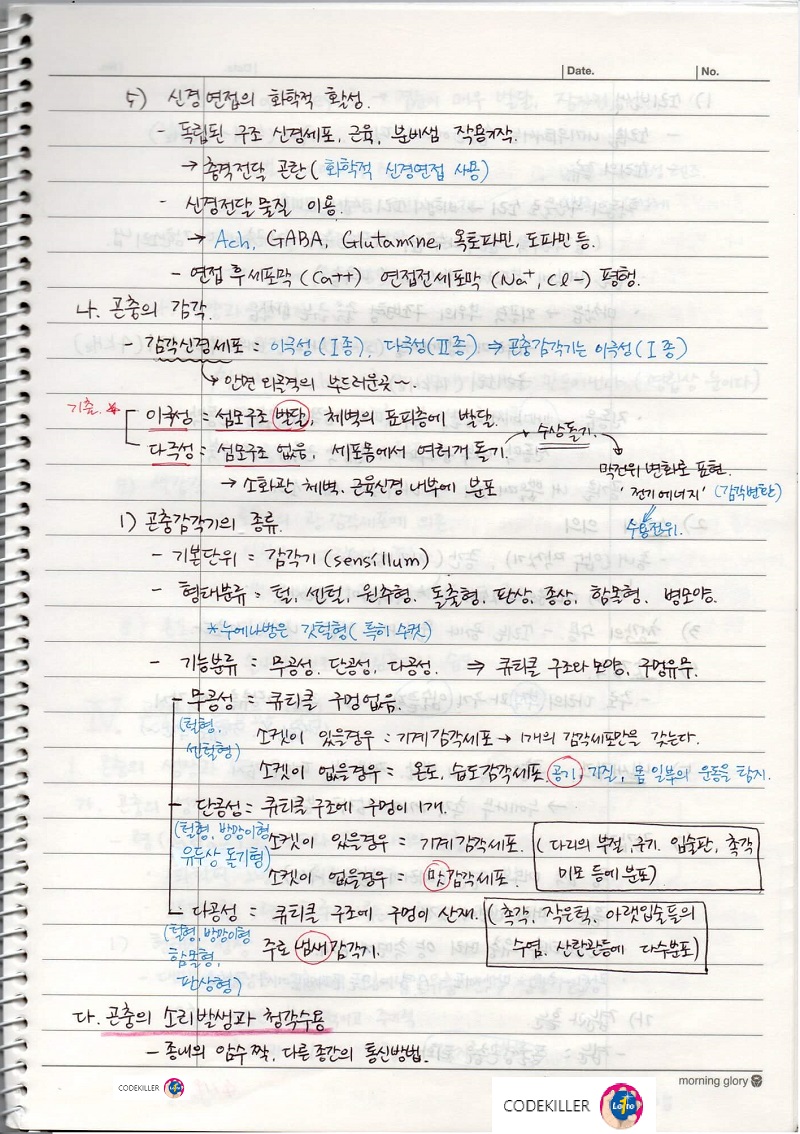 Date. No.
5) 신경연접의 화학적 활성.
- 독립된 구조 신경세포, 근육, 분비샘 작용기작.
→ 충격전달 곤란 (화학적 신경연접 사용)
- 신경전달 물질 이용.
→ Ach, GABA, Glutamine, 옥토파민, 도파민 등.
- 연접 후세포막 (Ca++) 연접전세포막 (Na+, Cl-) 평형.
나. 곤충의 감각.
- 감각신경세포 = 이극성 (I종), 다극성(II종) ⇒ 곤충감각기는 이극성 (I종)
↳ 안면 외골격의 부드러운곳~.
기출.★ 이극성 = 섬모구조 발달, 체벽의 표피층에 발달.
다극성 = 섬모구조 없음, 세포몸에서 여러개 돌기. → 수상돌기.
막전위 변화로 표현.
→ 소화관 체벽, 근육신경 내부에 분포
'전기에너지' (감각변환)
수용전위.
1) 곤충감각기의 종류.
- 기본단위 = 감각기 (sensillum)
- 형태분류 = 털, 센털, 원추형, 돌출형, 판상, 종상, 함몰형, 병모양.
*누에나방은 깃털형 (특히 수컷)
- 기능분류 = 무공성, 단공성, 다공성. ⇒ 큐티클 구조와 모양, 구멍유무.
- 무공성 = 큐티클 구멍없음.
(털형, 센털형)
소켓이 있을경우 = 기계감각세포 → 1개의 감각세포만을 갖는다.
소켓이 없을경우 = 온도, 습도감각세포 공기, 기질, 몸 일부의 운동을 탐지.
- 단공성 = 큐티클 구조에 구멍이 1개.
(털형, 방망이형 유두상 돌기형)
소켓이 있을경우 = 기계감각세포. (다리의 부절, 구기, 입술판, 촉각
소켓이 없을경우 = 맛감각세포. 미모 등에 분포)
- 다공성 = 큐티클 구조에 구멍이 산재. (촉각, 작은턱, 아랫입술들의
(털형, 방망이형 함몰형, 판상형)
주로 냄새감각기. 수염, 산란관등에 다수분포)
다. 곤충의 소리발생과 청각수용
- 종내의 암수 짝, 다른 종간의 통신방법.
CODEKILLER Lotto
morning glory
CODEKILLER Lotto